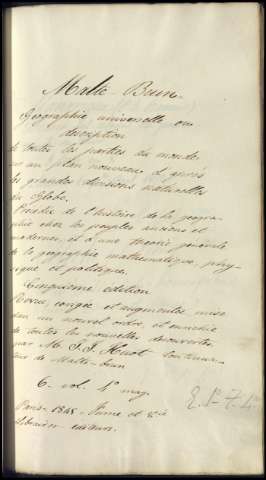 Malte-Brun.
Geographie universelle ou
description
de toutes les parties du monde
sur un plan nouveau d'après
les grandes divisions naturelles
du Globe.
Précédée de l'histoire de la geogra-
phie chez les peuples anciens et
modernes, et d'une theorie generale
de la geographie mathematique, phy-
sique et politique.
Cinquieme edition
Revue, corrigée et augmentée mise
dans un nouvel ordre, et enrichie
de toutes les nouvelles decouvertes
par M. J. J. Huot continua-
teur de Malte-brun
6. vol. 4º may.
Paris. 1848 - Furne et Cie
Libraires - editeurs.